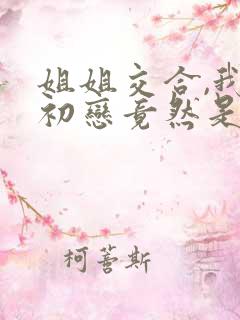 姐姐交合,我
初戀竟然是
柯薈斯